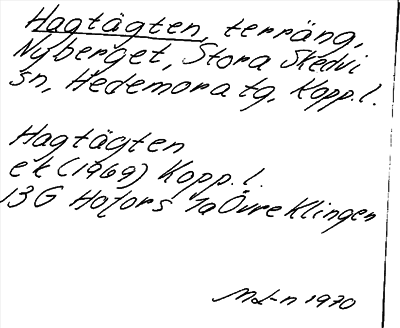 Hagtägten, terräng,
Nyberget, Stora Skedvi
sn, Hedemora tg, Kopp. l.
Hagtägten
ek (1969) Kopp. l.
13G Hofors 1a Övre Klingen
1970